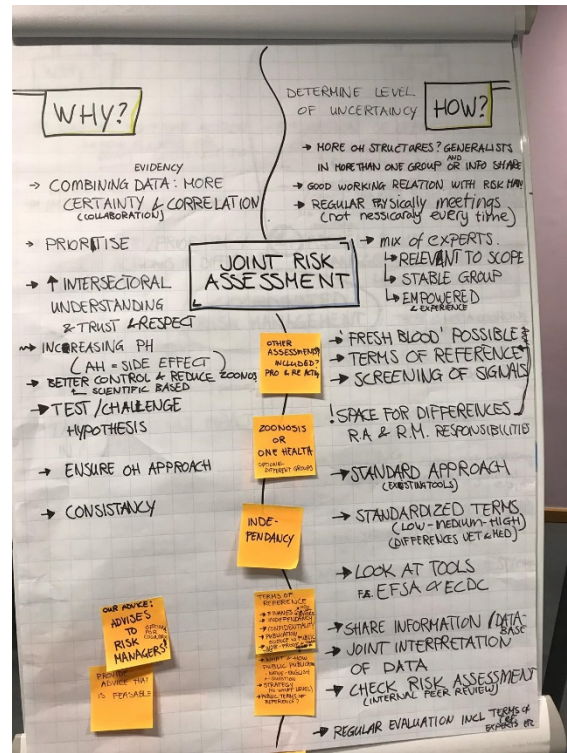 WHY?
EVIDENCY
→ COMBINING DATA: MORE
CERTAINTY & CORRELATION
(COLLABORATION)
→ PRIORITISE
→ ↑ INTERSECTORAL
UNDERSTANDING
& TRUST & RESPECT
→ INCREASING PH
(AH = SIDE EFFECT)
→ BETTER CONTROL & REDUCE ZOONOS
SCIENTIFIC BASED
→ TEST/CHALLENGE
HYPOTHESIS
→ ENSURE OH APPROACH
→ CONSISTANCY
OUR ADVICE:
ADVISES
TO
RISK
MANAGERS
PROVIDE
ADVICE THAT
IS FEASABLE
JOINT RISK
ASSESSMENT
OTHER
ASSESSMENTS
INCLUDED?
PRO & RE ACTIV
ZOONOSIS
OR
ONE HEALTH
OPTIONAL
DIFFERENT GROUPS
INDE-
PENDANCY
TERMS OF
REFERENCE
→ FINANCES
→ INDEPENDANCY
→ CONFIDENTIALITY
→ PUBLICATION
PUBLIC
NATIVE-ENGLISH
→ STRATEGY
DETERMINE LEVEL
OF UNCERTAINCY
HOW?
→ MORE OH STRUCTURES? GENERALISTS
IN MORE THAN ONE GROUP AND OR INFO SHARE
→ GOOD WORKING RELATION WITH RISK MAN
→ REGULAR PHYSICALLY MEETINGS
(NOT NESSICARALY EVERY TIME)
→ MIX OF EXPERTS.
↳ RELEVANT TO SCOPE
↳ STABLE GROUP
↳ EMPOWERED
& EXPERIENCE
→ 'FRESH BLOOD' POSSIBLE
→ TERMS OF REFERENCE
→ SCREENING OF SIGNALS
! SPACE FOR DIFFERENCES
R.A & R.M. RESPONSIBILITIES
→ STANDARD APPROACH
(EXISTING TOOLS)
→ STANDARDIZED TERMS
(LOW-MEDIUM-HIGH)
(DIFFERENCES VET & MED)
→ LOOK AT TOOLS
F.E. EFSA & ECDC
→ SHARE INFORMATION/DATA-
BASE
→ JOINT INTERPRETATION
OF DATA
→ CHECK RISK ASSESSMENT
(INTERNAL PEER REVIEW)
→ REGULAR EVALUATION INCL TERMS OF
EXPERTS